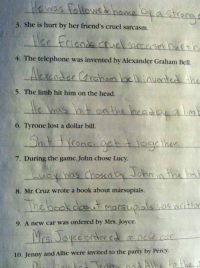 He was Followed home by a strong
3. She is hurt by her friend's cruel sarcasm.
Her Friends cruel sarcasm hurt
4. The telephone was invented by Alexander Graham Bell.
Alexander Graham bell invented the
5. The limb hit him on the head.
He was hit on the head by a limb
6. Tyrone lost a dollar bill.
Tyrone get together
7. During the game, John chose Lucy.
Lucy was chosen by John in the
8. Mr. Cruz wrote a book about marsupials.
The book about marsupials was writton
9. A new car was ordered by Mrs. Joyce.
Mrs. Joyce ordered a new car
10. Jenny and Allie were invited to the party by Percy.